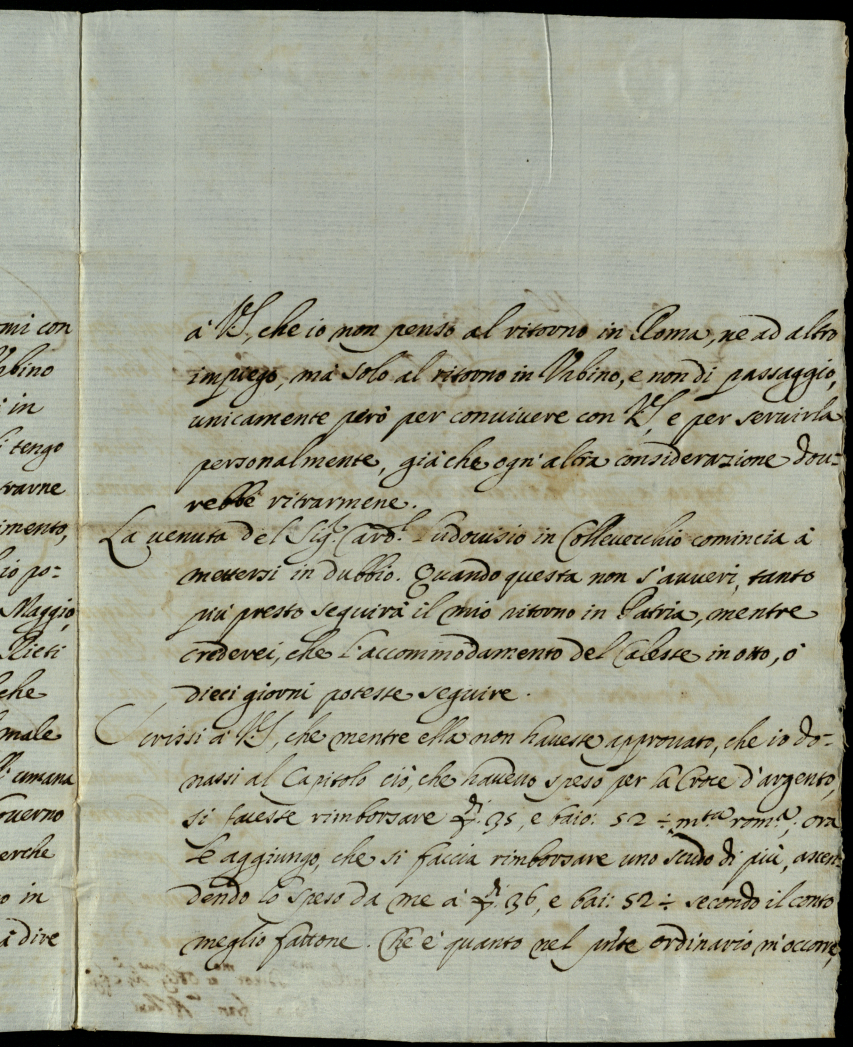 mi con
bino
in
tengo
trarne
imento,
io po=
Maggio,
Rieti
che
male
emana
overno
erche
o in
à dire
à VS, che io non penso al ritorno in Roma, ne ad altro
impiego, mà solo al ritorno in Vrbino, e non di passaggio,
unicamente però per convivere con VS, e per servirla
personalmente, già che ogn'altra considerazione dou=
rebbe ritrarmene.
La venuta del Sig.r Card.l Ludovisio in Collevecchio comincia à
mettersi in dubbio. Quando questa non s'avveri, tanto
più presto seguirà il mio ritorno in Patria, mentre
crederei, che l'accommodamento del Calesse in otto, ò
dieci giorni potesse seguire.
Scrissi à VS, che mentre ella non havesse approvato, che io do=
nassi al Capitolo ciò, che havevo speso per la Croce d'argento,
si facesse rimborsare 35, e baio: 52 ÷ m.ta rom.a; ora
le aggiungo, che si faccia rimborsare uno scudo di più, ascen=
dendo lo speso da me à 36, e bai: 52 ÷ secondo il conto
meglio fattone. Ch'è quanto nel p̃nte ordinario m'occorre,